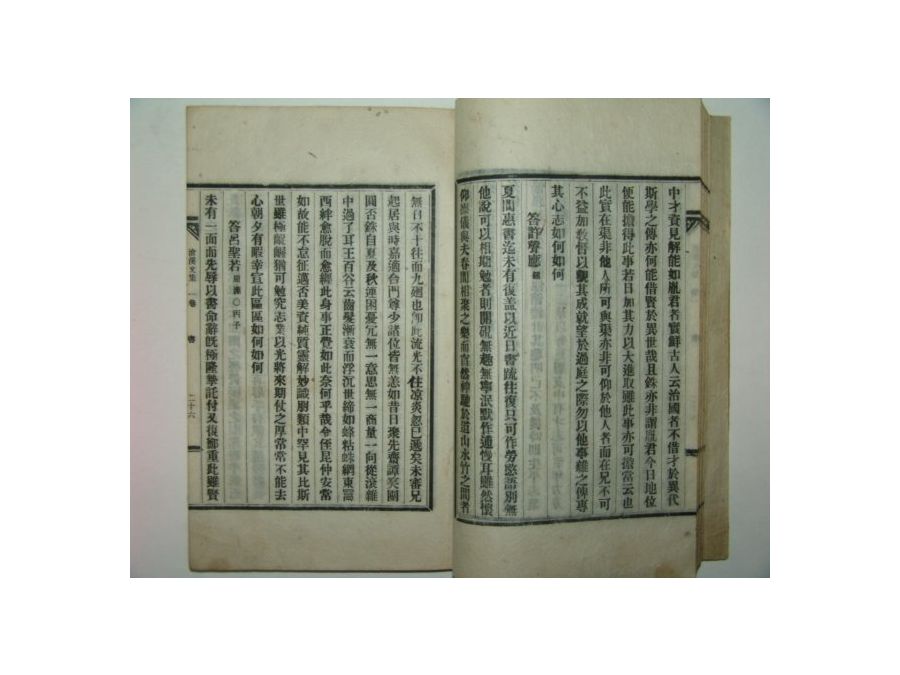 中才資見解能如胤君者實鮮古人云治國者不借才於異代
斯學之傳亦何能借賢於異世哉且銖亦非謂胤君今日地位
便能擔得此事若日加其力以大進取雖此事亦可擔當云也
此實在渠非他人所可與渠亦非可仰於他人者而在兄不可
不益加敎督以觀其成就望於過庭之際勿以他事難之俾專
其心志如何如何
答許聲應
夏間惠書迄未有復盖以近日書疏往復只可作勞慰語別無
他說可以相勉者則開硯無趣無寧泯默作逋慢耳雖然懷
仰 儀與夫春間相聚之樂而直然神馳於道山水竹之間者
無日不十往而九廻也 此流光不住凉炎忽已遞矣未審兄
起居與時嘉適台門尊少諸位皆無恙如昔日衆先齋譚矣關
圓否銖自夏及秋連困憂冗無一意思無一商量一向從滾雜
中過了耳王百谷云齒髮漸衰而浮沉世締如蜂粘蛛網東罥
西絆愈脫而愈纏此身事正覺如此奈何乎哉令侄昆仲安常
如故能不怠征邁否美資純質靈解妙識朋類中罕見其比斯
世雖極齷齪猶可勉究志業以光將來期仗之厚常常不能去
心朝夕有暇幸宣此區區如何如何
答呂聖若 丙子
未有一面而先辱以書命辭旣極隆摯託付又復鄭重此雖賢
滄溪文集
卷
書
二十六